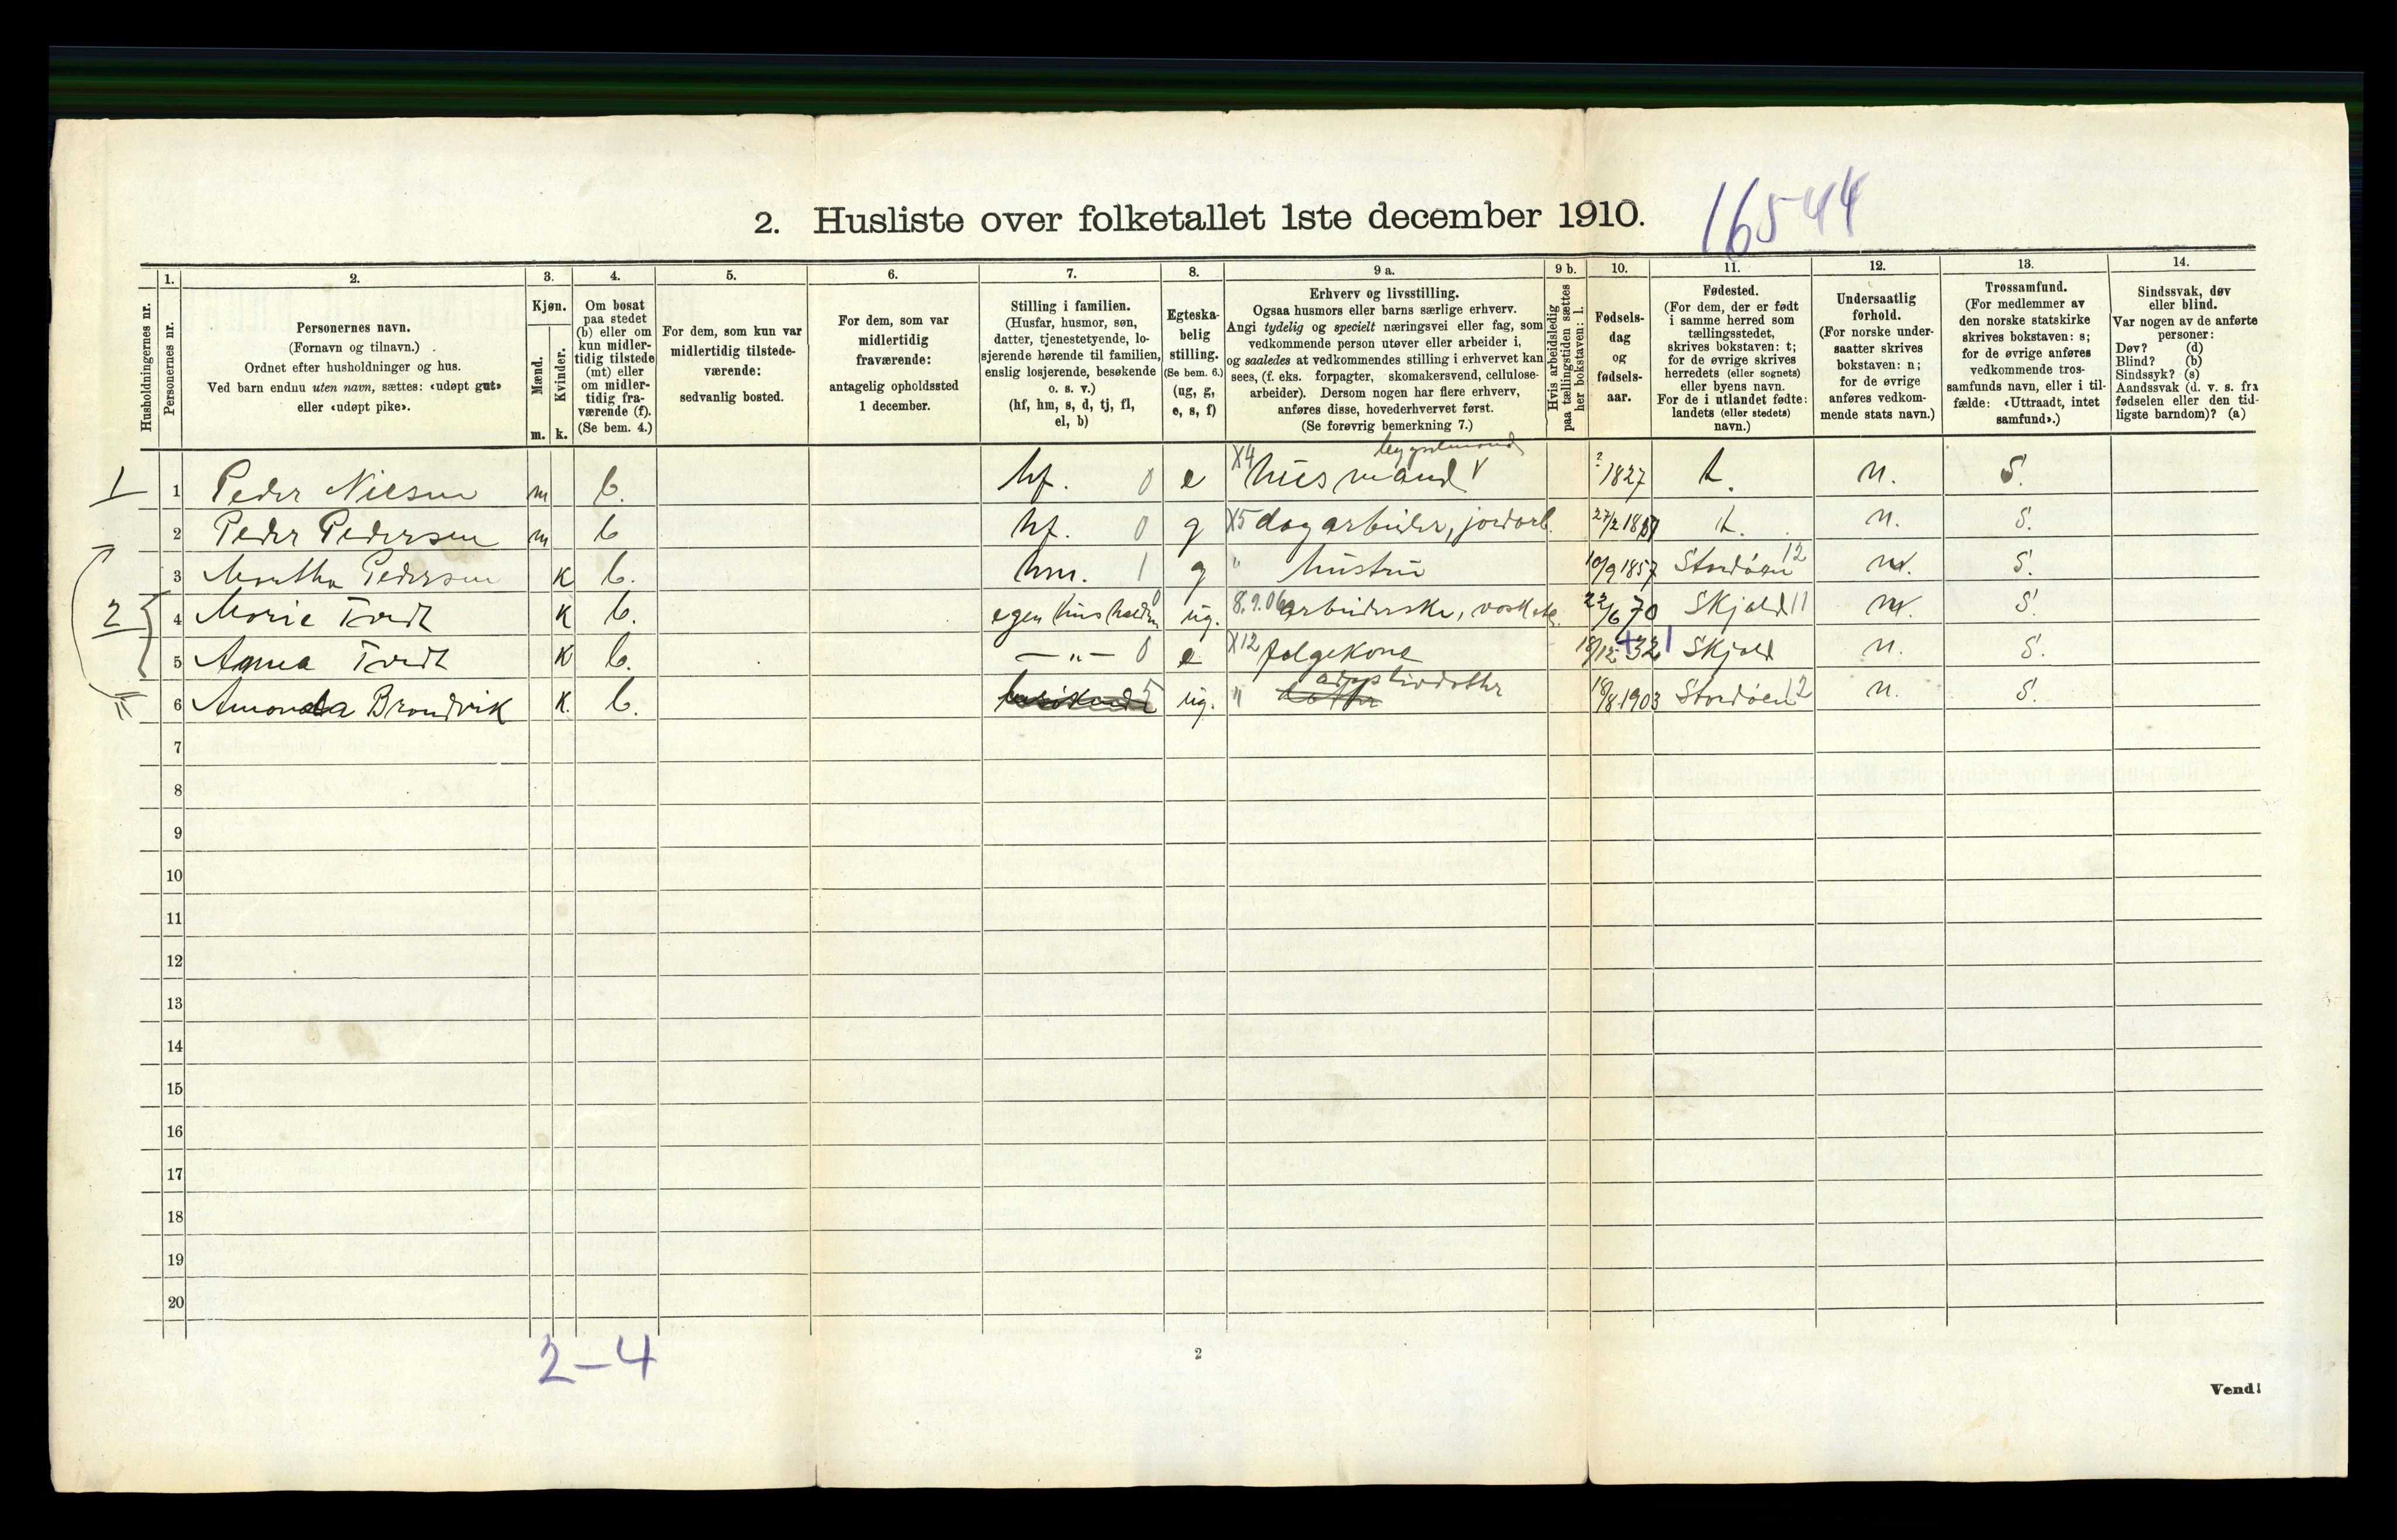 2. Husliste over folketallet 1ste december 1910.
16544
Husholdningernes nr.
1.
Personernes nr.
2.
Personernes navn.
(Fornavn og tilnavn.)
Ordnet efter husholdninger og hus.
Ved barn endnu uten navn, sættes: «udøpt gut»
eller «udøpt pike».
3.
Kjøn.
Mænd.
m.
Kvinder.
k.
4.
Om bosat
paa stedet
(b) eller om
kun midler-
tidig tilstede
(mt) eller
om midler-
tidig fra-
værende (f).
(Se bem. 4.)
5.
For dem, som kun var
midlertidig tilstede-
værende:
sedvanlig bosted.
6.
For dem, som var
midlertidig
fraværende:
antagelig opholdssted
1 december.
7.
Stilling i familien.
(Husfar, husmor, søn,
datter, tjenestetyende, lo-
sjerende hørende til familien,
enslig losjerende, besøkende
o. s. v.)
(hf, hm, s, d, tj, fl,
el, b)
8.
Egteska-
belig
stilling.
(Se bem. 6.)
(ug, g,
e, s, f)
9 a.
Erhverv og livsstilling.
Ogsaa husmors eller barns særlige erhverv.
Angi tydelig og specielt næringsvei eller fag, som
vedkommende person utøver eller arbeider i,
og saaledes at vedkommendes stilling i erhvervet kan
sees, (f. eks. forpagter, skomakersvend, cellulose-
arbeider). Dersom nogen har flere erhverv,
anføres disse, hovederhvervet først.
(Se forøvrig bemerkning 7.)
9 b.
Hvis arbeidsledig
paa tællingstiden sættes
her bokstaven: l.
10.
Fødsels-
dag
og
fødsels-
aar.
11.
Fødested.
(For dem, der er født
i samme herred som
tællingsstedet,
skrives bokstaven: t;
for de øvrige skrives
herredets (eller sognets)
eller byens navn.
For de i utlandet fødte:
landets (eller stedets)
navn.)
12.
Undersaatlig
forhold.
(For norske under-
saatter skrives
bokstaven: n;
for de øvrige
anføres vedkom-
mende stats navn.)
13.
Trossamfund.
(For medlemmer av
den norske statskirke
skrives bokstaven: s;
for de øvrige anføres
vedkommende tros-
samfunds navn, eller i til-
fælde: «Uttraadt, intet
samfund».)
14.
Sindssvak, døv
eller blind.
Var nogen av de anførte
personer:
Døv? (d)
Blind? (b)
Sindssyk? (s)
Aandssvak (d. v. s. fra
fødselen eller den tid-
ligste barndom)? (a)
1 1 Peder Nilsen m b. hf. 0 e X4 husmand ? 1827 t. n. S.
2 Peder Pedersen m b hf. 0 g X5 dagarbeider, jordarb. 27/2 1857 t. n. S.
3 Martha Pedersen K b. hm. 1 g " hustru 10/9 1857 Stordøen 12 n. S.
2 4 Marie Tvedt K b. egen hus holdn 0 ug. 8.9.06 arbeiderske, vask 22/6 70 Skjold 11 n. S.
5 Anna Tvedt K b. — " — 0 e X12 følgekone 18/12 32 Skjold n. S.
6 Amanda Brandvik K. b. besøkende 5 ug. " datter adoptivdotter 18/8 1903 Stordøen 12 n. S.
7
8
9
10
11
12
13
14
15
16
17
18
19
20
2-4
2
Vend!